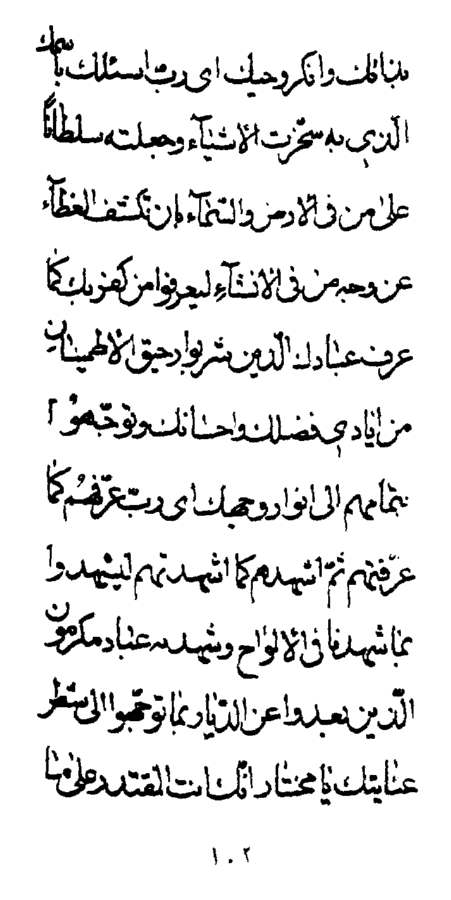 بثنائك وانكر وحيك اى ربّ اسئلك باسمك
الّذي به سخّرت الاشيآء وجعلته سلطانًا
على من فى الارض والسّمآء بان تكشف الغطآء
عن وجه من فى الانشآء ليعرفوا من كفر بك كما
عرف عبادك الّذين شربوا رحيق الاطمينان
من ايادي فضلك واحسانك وتوجّهوا
بتمامهم الى انوار وجهك اى ربّ عرّفهم كما
عرّفتهم ثمّ اشهدهم كما اشهدتهم ليشهدوا
بما شهدنا فى الالواح وشهد به عباد مكرمون
الّذين بعدوا عن الدّيار بما توجّهوا الى شطر
عنايتك يا مختار انّك انت المقتدر على ما
١٠٢